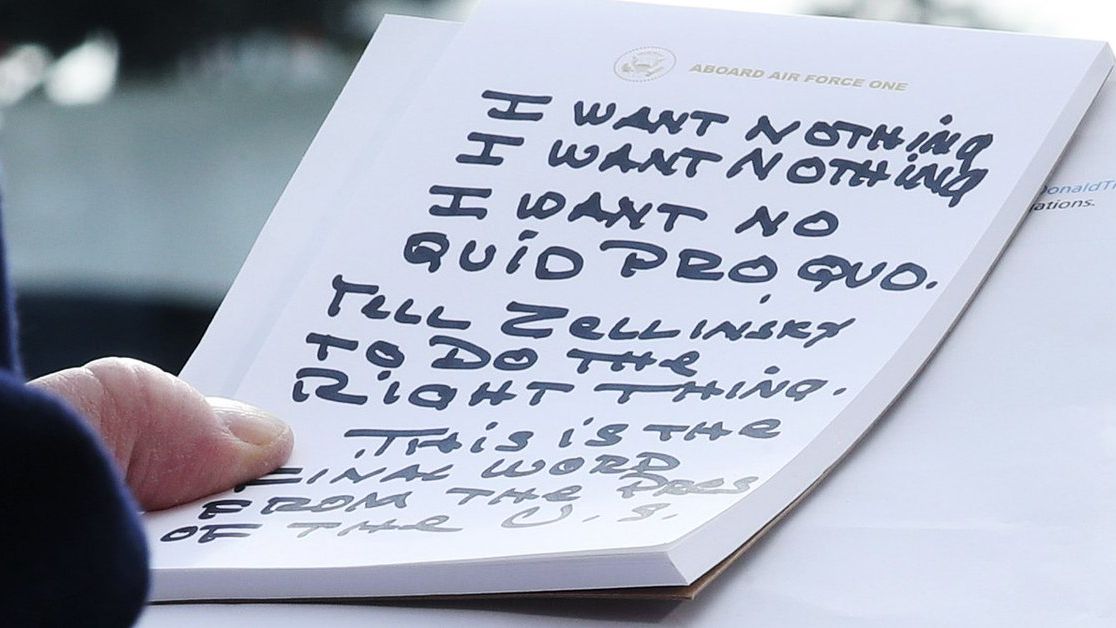 ABOARD AIR FORCE ONE
I WANT NOTHING
I WANT NOTHING
I WANT NO
QUID PRO QUO.
TELL ZELLINSKY
TO DO THE
RIGHT THING.
THIS IS THE
FINAL WORD
FROM THE PRES
OF THE U.S.
onaldT
ations.